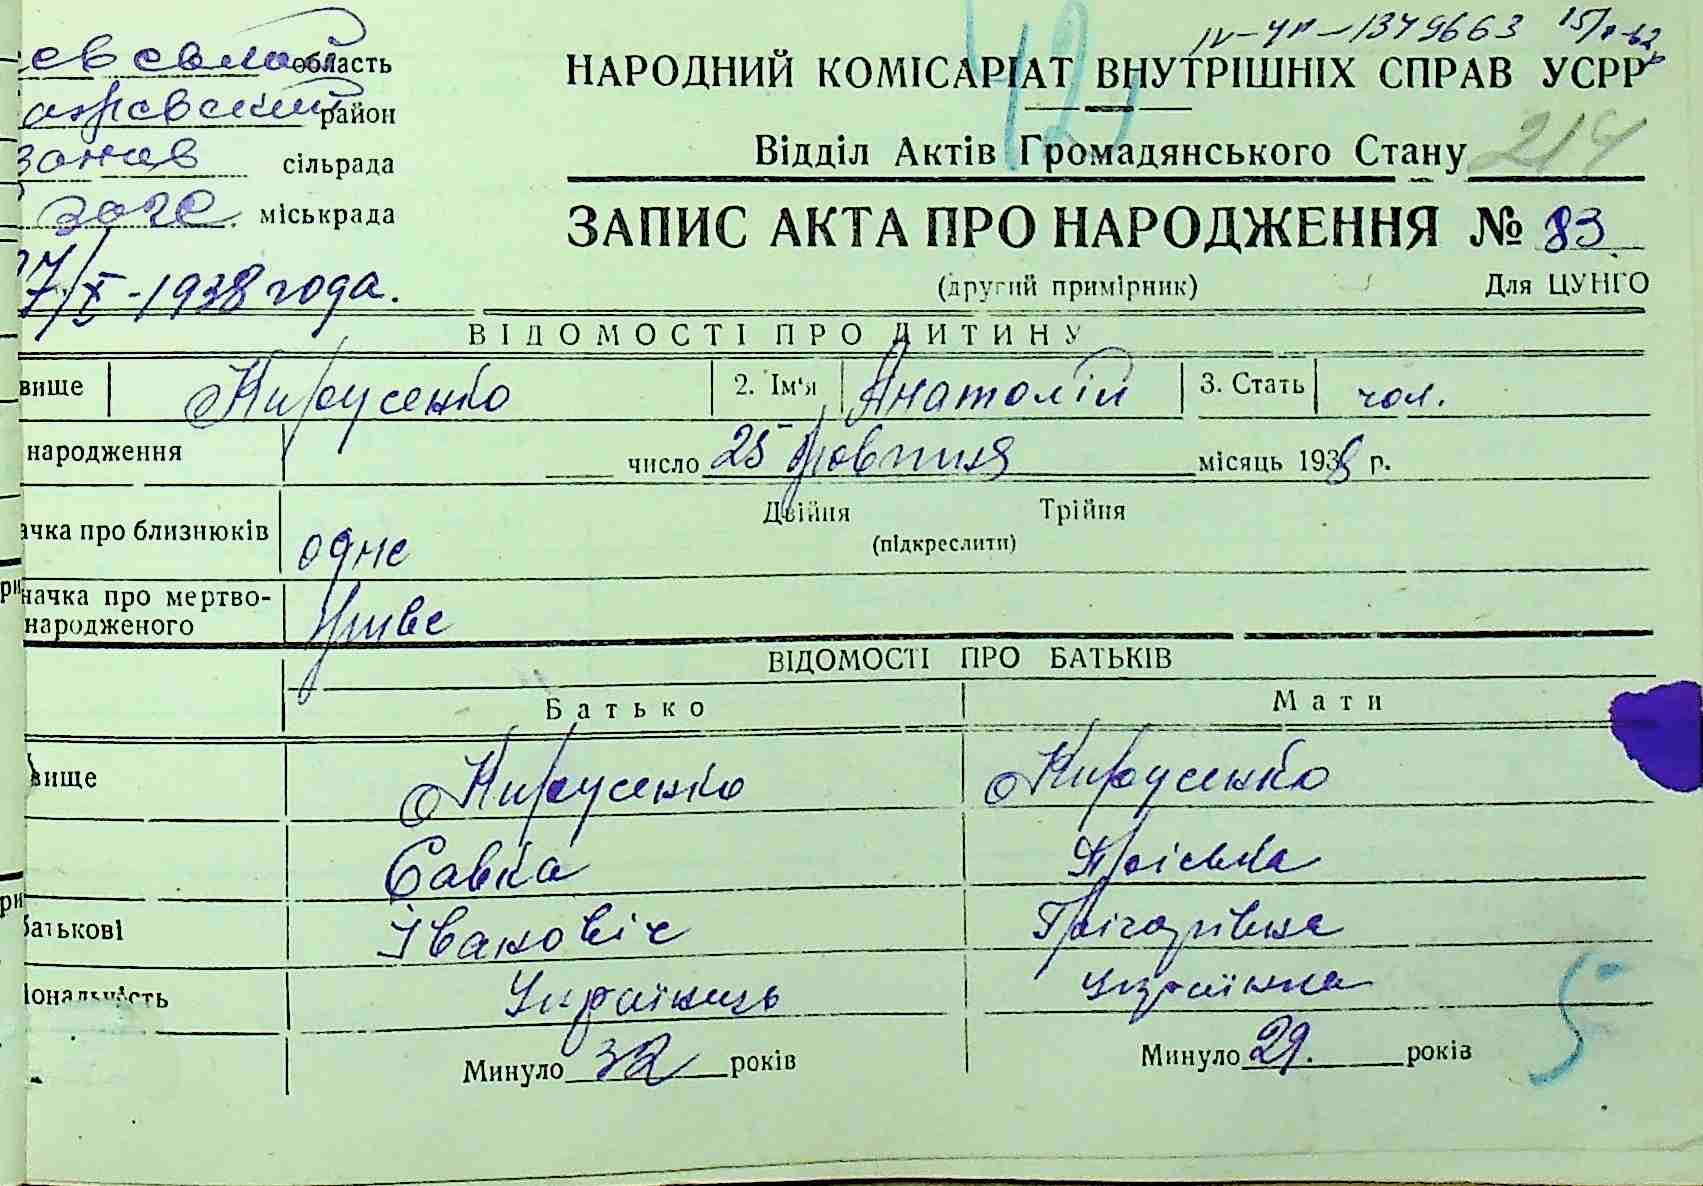 IV-УП-1379663
область
НАРОДНИЙ КОМІСАРІАТ ВНУТРІШНІХ СПРАВ УСРР
район
Відділ Актів Громадянського Стану 214
сільрада
міськрада
ЗАПИС АКТА ПРО НАРОДЖЕННЯ № 83
7/X-1938 года.
(другий примірник) Для ЦУНГО
ВІДОМОСТІ ПРО ДИТИНУ
вище Кирусенко 2. Ім'я Анатолій 3. Стать чол.
народження число 25 жовтня місяць 1938 р.
ачка про близнюків одне Двійня Трійня
(підкреслити)
начка про мертво-
народженого живе
ВІДОМОСТІ ПРО БАТЬКІВ
Батько Мати
вище Кирусенко Кирусенко
Савка Пріська
батькові Івановіч Грігорівна
іональність Українець українка
Минуло 32 років Минуло 29. років
5